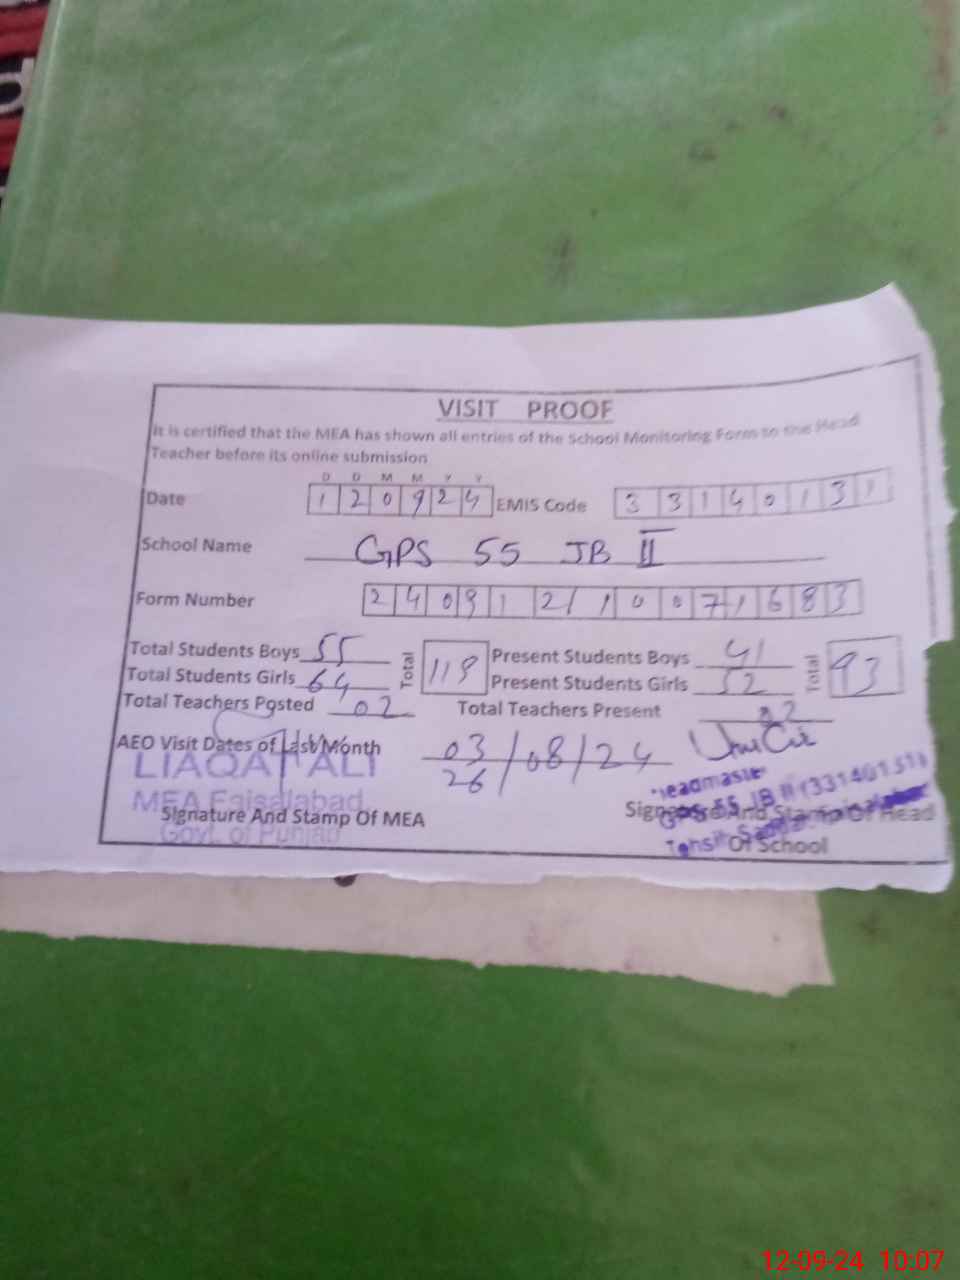 VISIT PROOF
It is certified that the MEA has shown all entries of the School Monitoring Form to the Head
Teacher before its online submission
D D M M Y Y
Date 1 2 0 9 2 4 EMIS Code 3 3 1 4 0 1 3 1
School Name GPS 55 JB II
Form Number 2 4 0 9 1 2 1 1 0 0 7 1 6 8 3
Total Students Boys 55 Total 119 Present Students Boys 41 Total 93
Total Students Girls 64 Present Students Girls 52
Total Teachers Posted 02 Total Teachers Present 02
AEO Visit Dates of Last Month 03/08/24
26
LIAQAT ALI
MEA Faisalabad
Govt. of Punjab
Signature And Stamp Of MEA
Headmaster
GPS 55 JB II (33140131)
Tehsil Saddar
Signature And Stamp Of Head
Of School
12-09-24 10:07